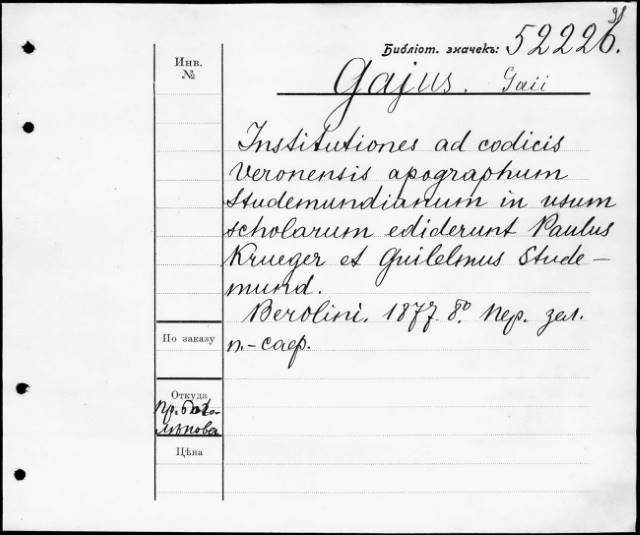 Библіот. значекъ: 52226.
Инв.
№
Gajus. Gaii
Institutiones ad codicis
Veronensis apographum
Studemundianum in usum
scholarum ediderunt Paulus
Krueger et Guilelmus Stude-
mund.
Berolini. 1877. 8º. Пер. зел.
п.-саф.
По заказу
Откуда
Пр.
Цѣна